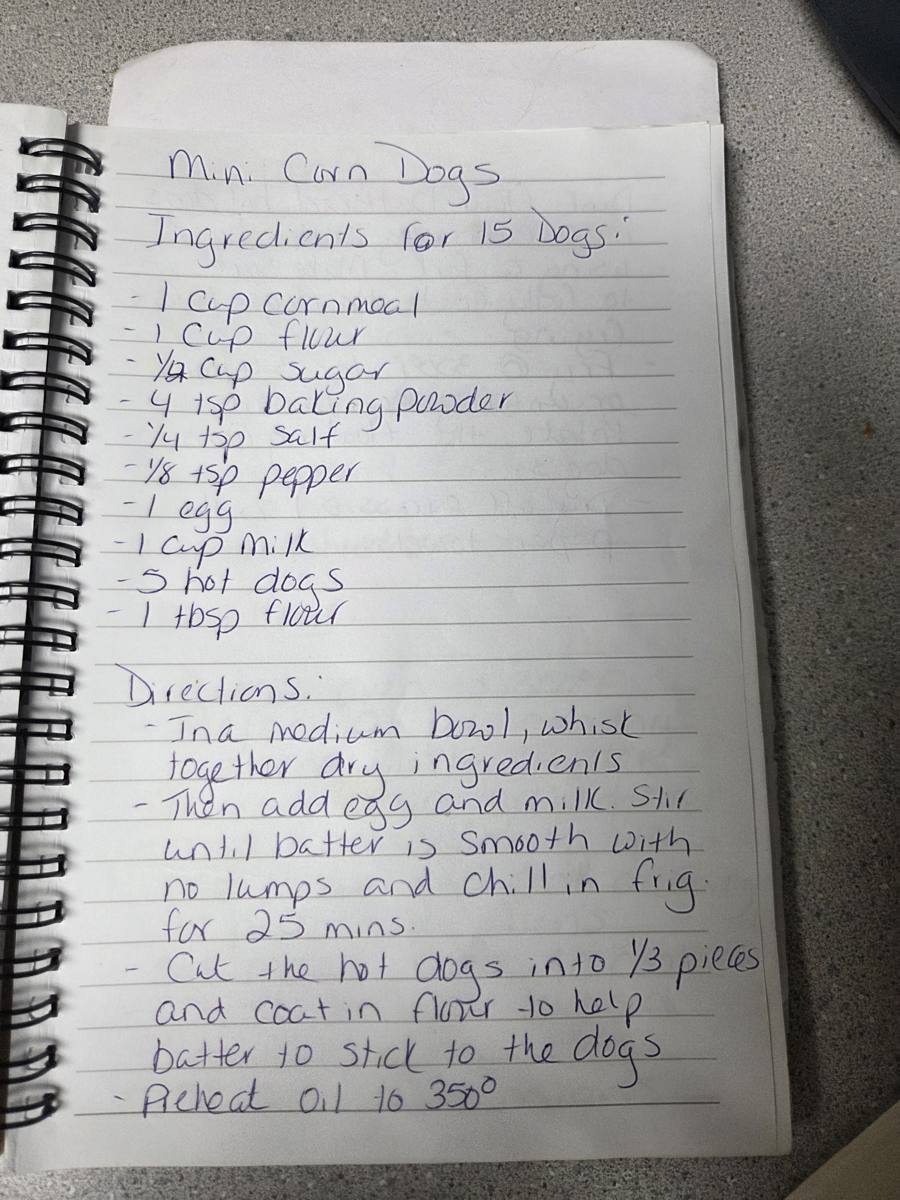 Mini Corn Dogs
Ingredients for 15 Dogs:
- 1 Cup cornmeal
- 1 Cup flour
- Cup sugar
- 4 tsp baking powder
- 1/4 tsp salt
- 1/8 tsp pepper
- 1 egg
- 1 cup milk
- 5 hot dogs
- 1 tbsp flour
Directions:
- In a medium bowl, whisk
together dry ingredients
- Then add egg and milk. Stir
until batter is smooth with
no lumps and chill in frig.
for 25 mins.
- Cut the hot dogs into 1/3 pieces
and coat in flour to help
batter to stick to the dogs
- Preheat oil to 350°